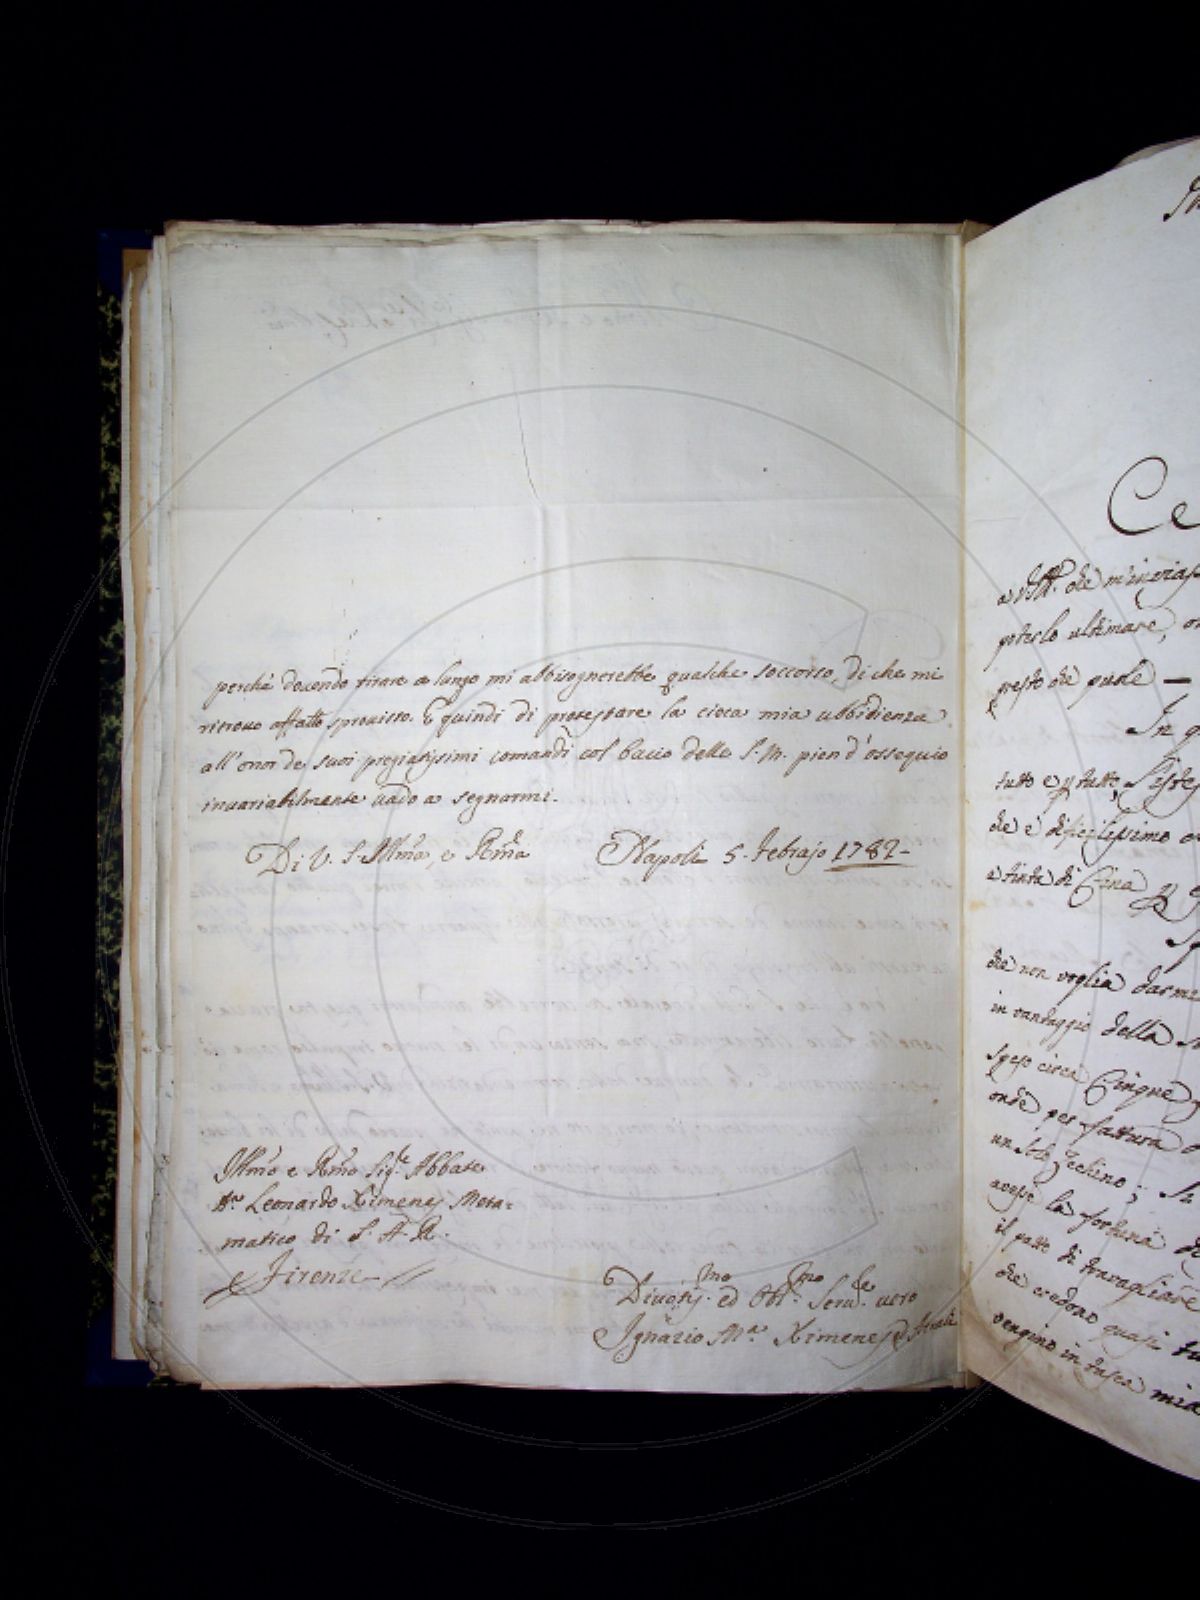 perchè dovendo tirare a lungo mi abbisognerebbe qualche soccorso, di che mi
ritrovo affatto sprovisto. E quindi di protestare la cieca mia ubbidienza
all'onor de suoi pregiatissimi comandi col bacio delle S. M. pien d'ossequio
invariabilmente vado a segnarmi.
Di V. S. Illma, e Rma
Napoli 5. Febrajo 1782
Illmo e Rmo Sigre Abbate
Dn Leonardo Ximenes Mata=
matico di S. A. R.
Firenze
Divotismo ed Oblmo Servre vero
Ignazio Ma. Ximenes
Ce
a VS. che m'invias
poterlo ultimare, o
presto che puole —
In q
tutto e p tutto, Sistes
che è dificilissimo
a tinta di Cina
che non voglia darmi
in vandaggio della
speso circa Cinque
onde per fattura
un solo Zechino;
avesse la fortuna de
il patto di travagliare
che credono quasi tu
vengino in tasca mia